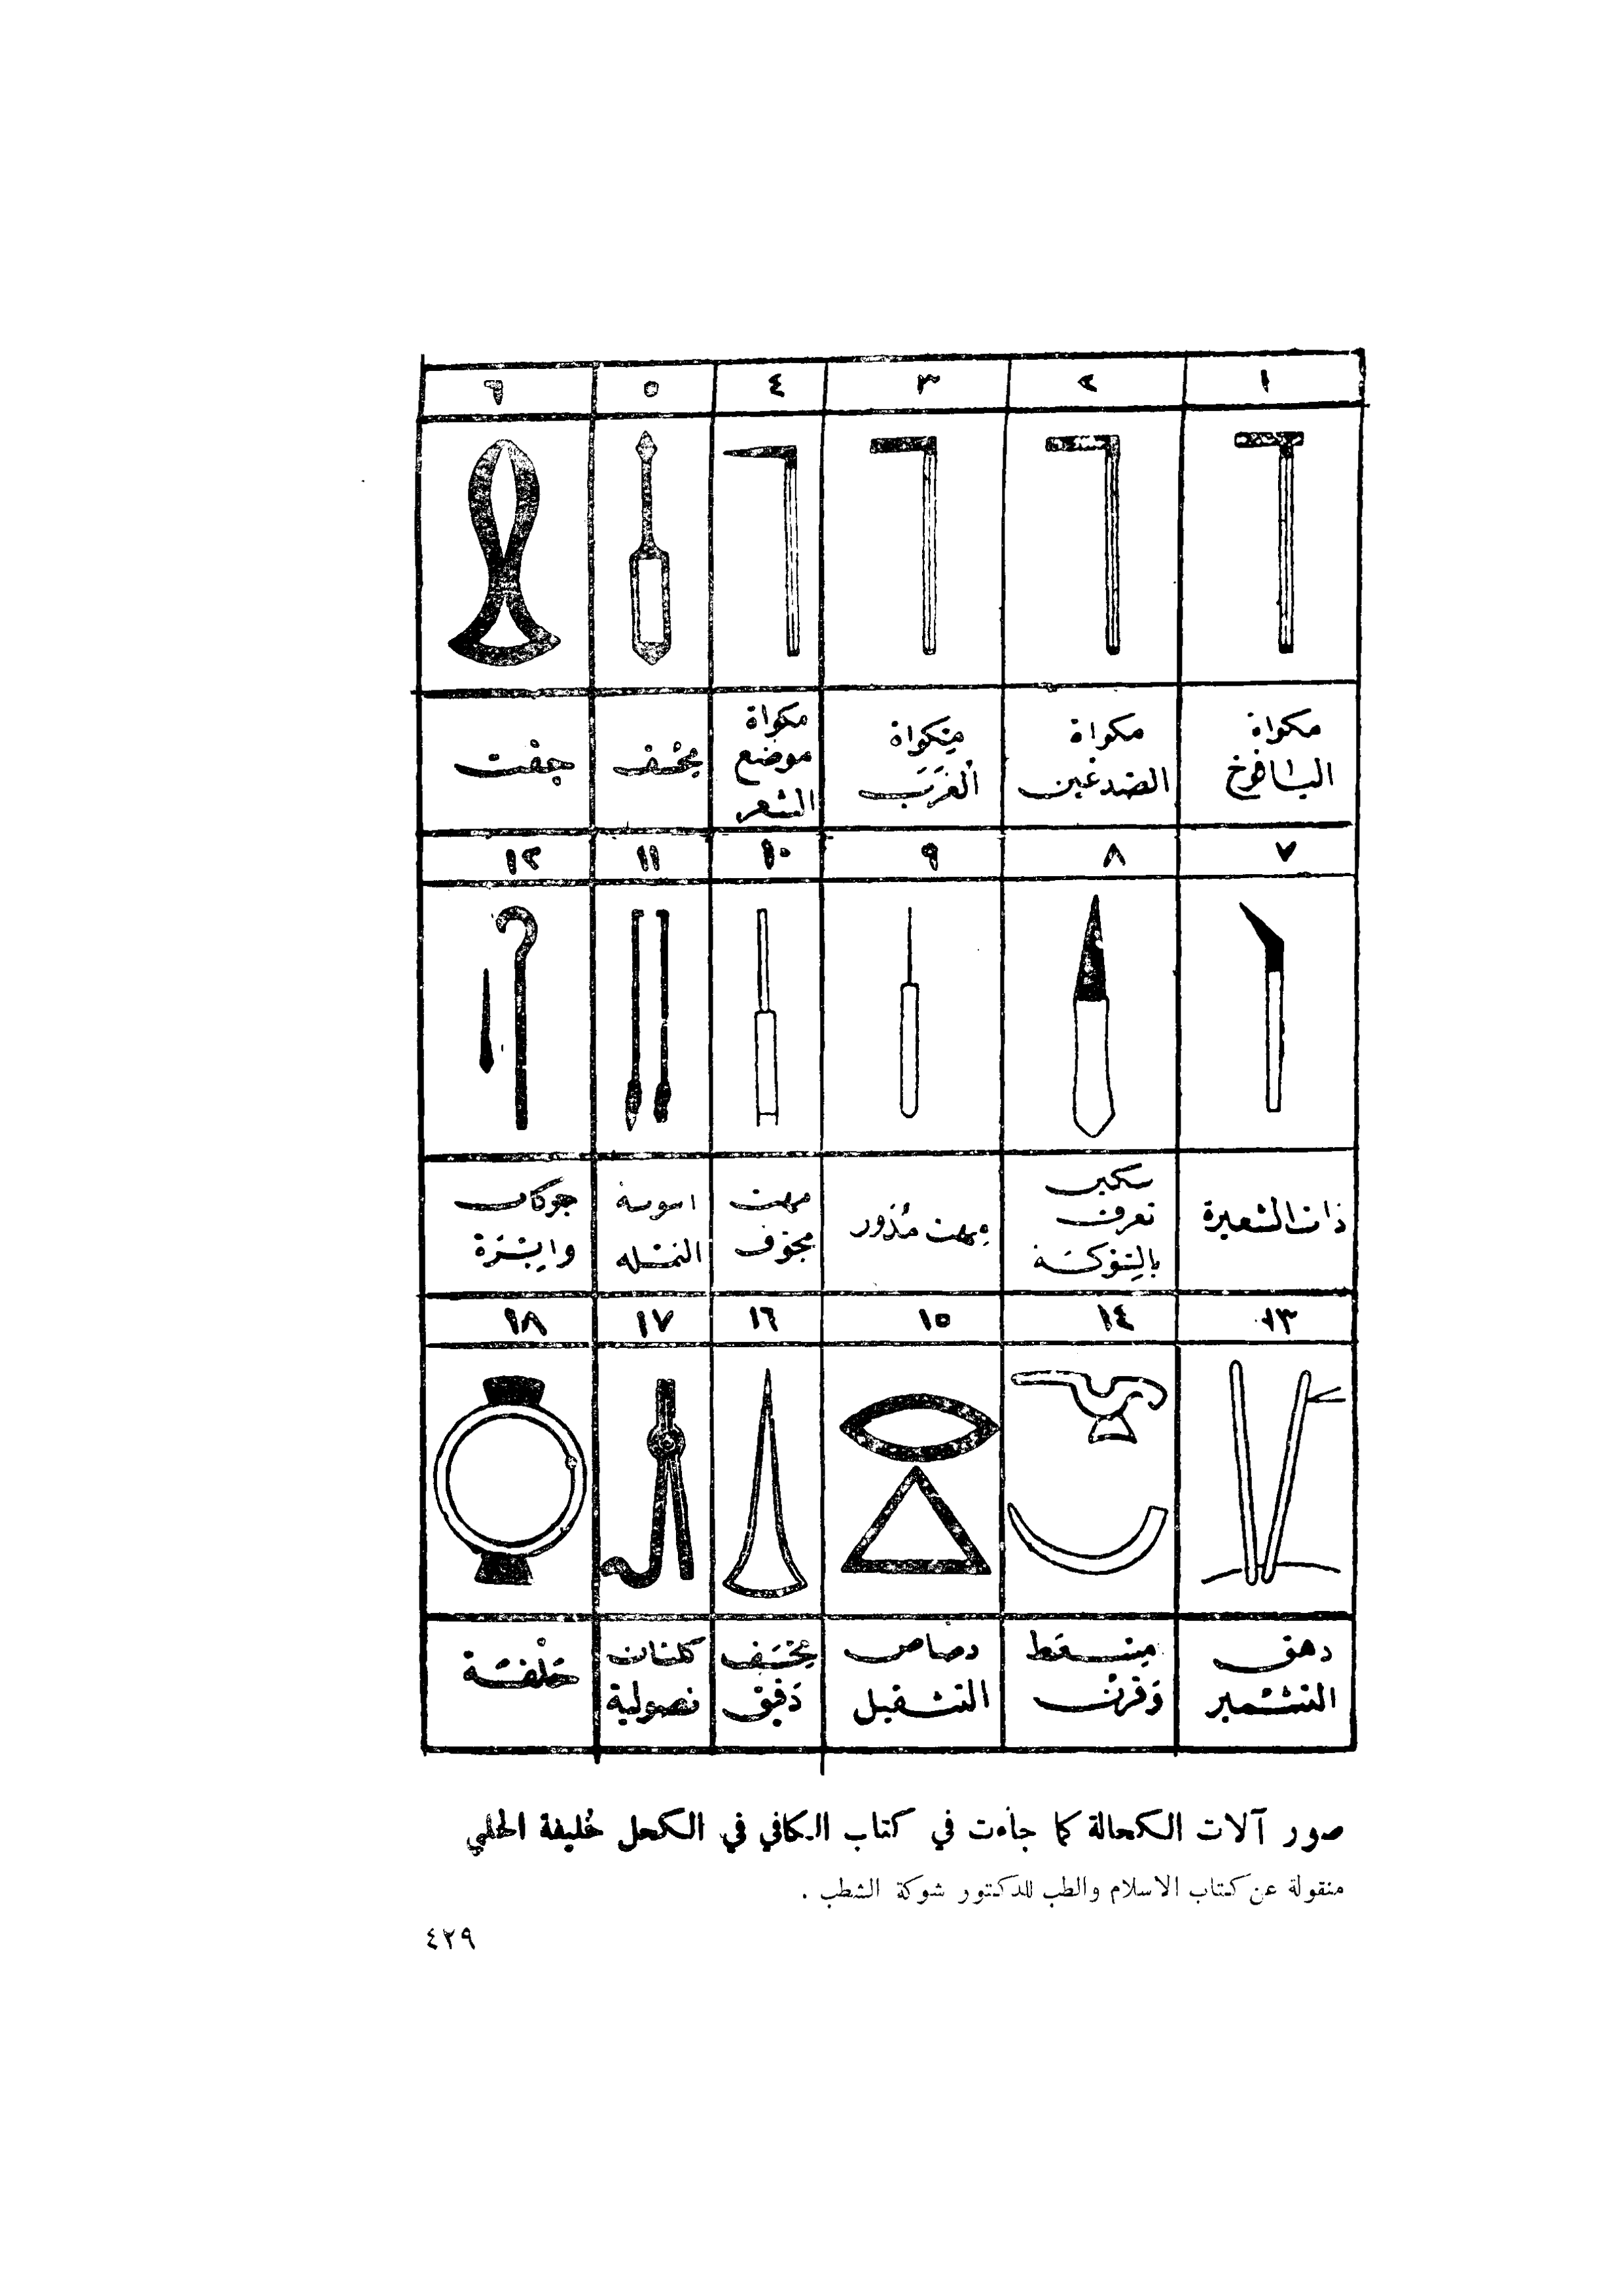 ١ ٢ ٣ ٤ ٥ ٦
مكواة اليافوخ
مكواة الصدغين
مِكواة الغَرَب
مكواة موضع الشعر
مِخْسف
جِفْت
٧ ٨ ٩ ١٠ ١١ ١٢
ذات الشعيرة
سكين تعرف
مهت مُدَور
مهت مجوف
النمله
وابْرَة
١٣ ١٤ ١٥ ١٦ ١٧ ١٨
دهق التشمير
وَقرن
رصاص التثقيل
مِخسَف دَقيق
كلبتان نصولية
صور آلات الكحالة كما جاءت في كتاب الكافي في الكحل خليفة الحلبي
منقولة عن كتاب الاسلام والطب للدكتور شوكة الشطب .
٤٢٩